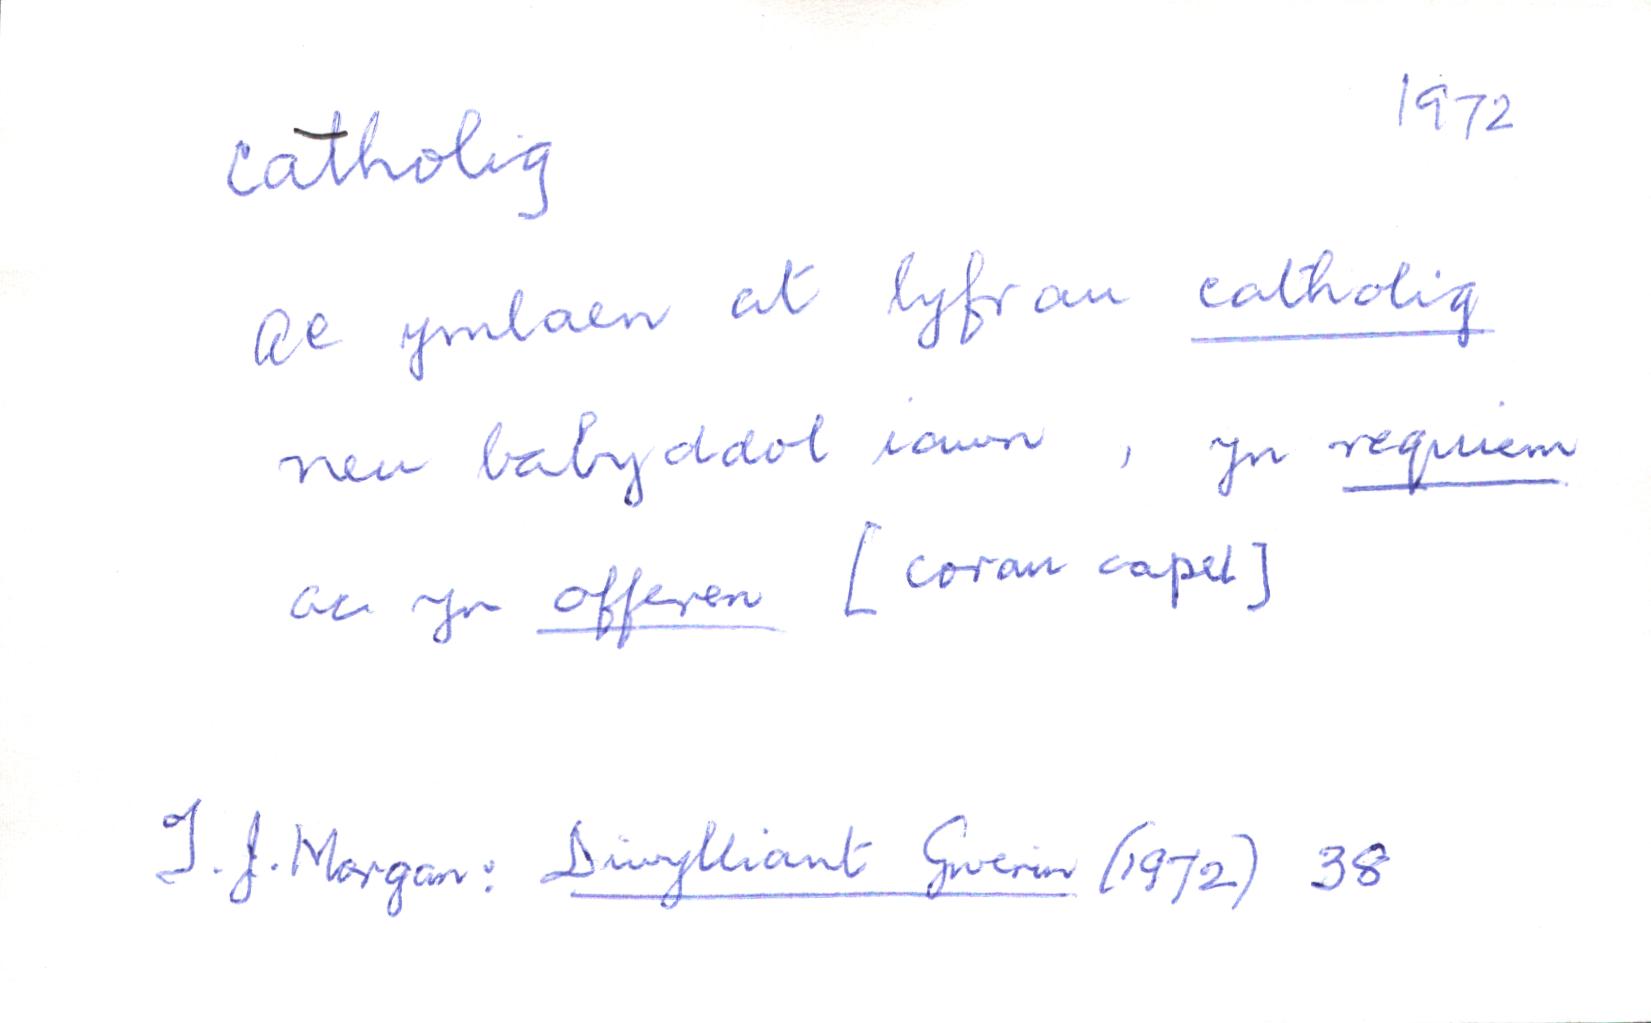 1972
catholig
ac ymlaen at lyfrau catholig
neu babyddol iawn, yn requiem
ac yn offeren [corau capel]
T. J. Morgan: Diwylliant Gwerin (1972) 38